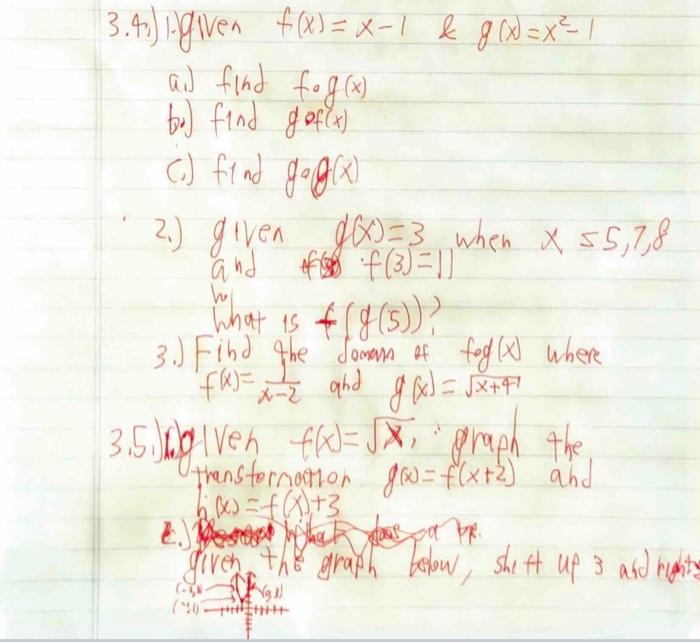 3.4.) 1.) given f(x) = x-1 & g(x) = x²-1
a.) find fog(x)
b.) find gof(x)
c.) find gog(x)
2.) given g(x)=3 when x = 5,7,8
and f(3)=11
What is f(g(5))?
3.) Find the domain of fog(x) where
f(x)= 1/x-2 and g(x) = √x+4
3.5.) 1.) given f(x)=√x, graph the
transformation g(x)=f(x+2) and
h(x)=f(x)+3
2.)
given the graph below, shift up 3 and right